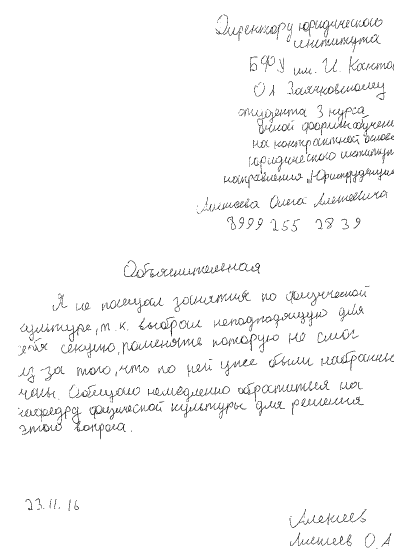 Директору юридического
института
БФУ им. И. Канта
О.Л Заячковскому
студента 3 курса
очной формы обучени
на контрактной основе
юридического институт
направления "Юриспруденция
Алексеева Олега Алексеевича
8999 255 2839
Объяснительная
Я не посещал занятия по физической
культуре, т.к. выбрал неподходящую для
себя секцию, поменять которую не смог
из за того, что по ней уже были набраны
члены. Обещаю немедленно обратиться на
кафедру физической культуры для решения
этого вопроса.
23.11.16
Алексеев
Алексеев О.А